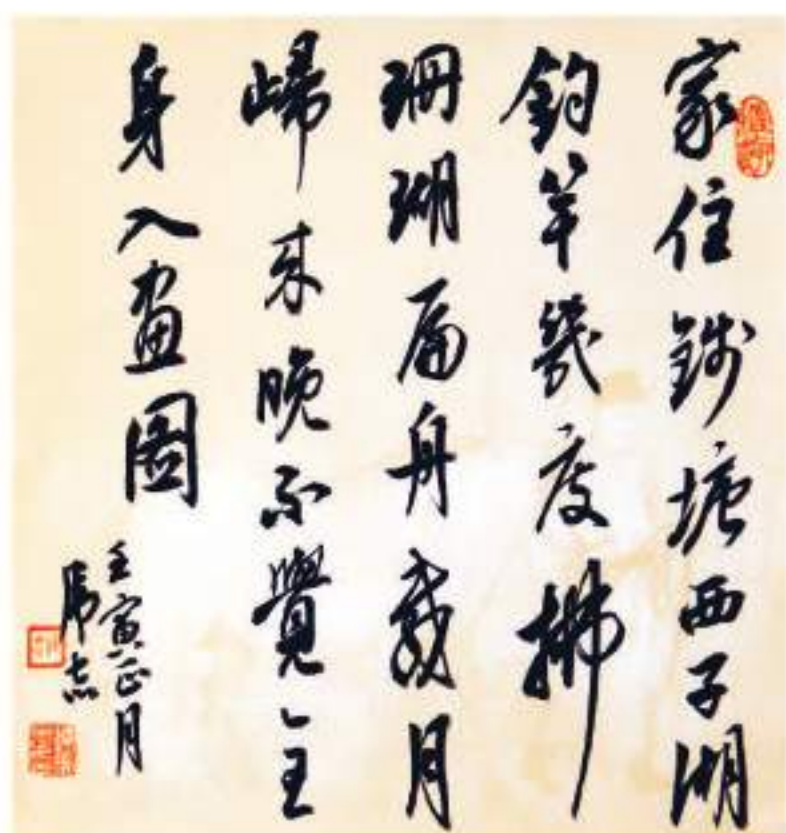 家住錢塘西子湖
釣竿幾度拂
珊瑚扁舟載月
歸來晚不覺全
身入畫圖
壬寅正月
志